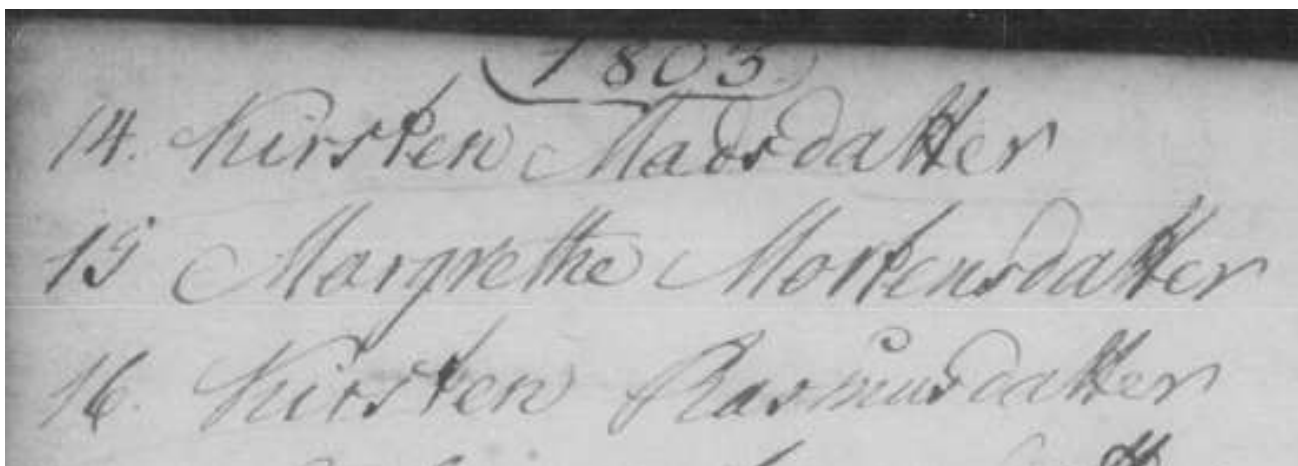 1803
14. Kirsten Madsdatter
15 Margrethe Mortensdatter
16. Kirsten Rasmusdatter